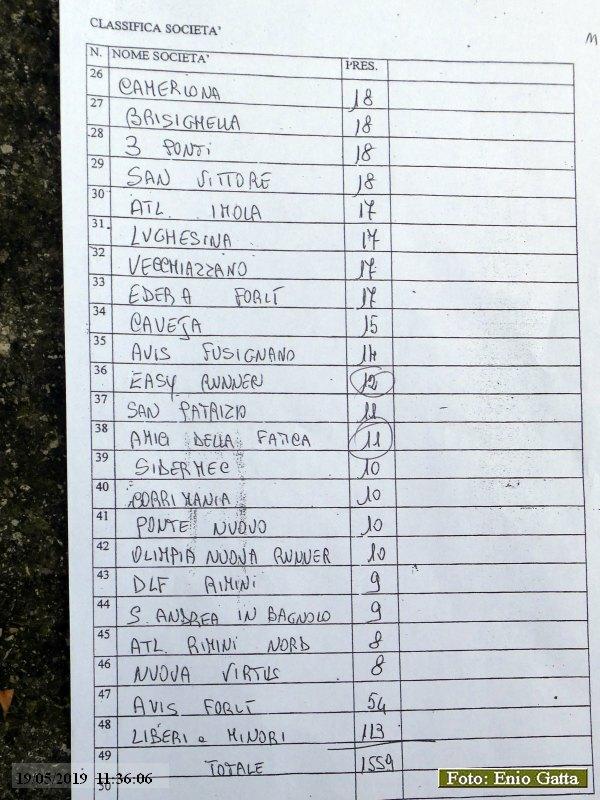 CLASSIFICA SOCIETA'
M
N. NOME SOCIETA' PRES.
26 CAMERLONA 18
27 BRISIGHELLA 18
28 3 PONTI 18
29 SAN VITTORE 18
30 ATL. IMOLA 17
31 LUGHESINA 17
32 VECCHIAZZANO 17
33 EDERA FORLÌ 17
34 CAVEJA 15
35 AVIS FUSIGNANO 14
36 EASY RUNNER 12
37 SAN PATRIZIO 11
38 AMICI DELLA FATICA 11
39 SIDERMEC 10
40 CORRI MANIA 10
41 PONTE NUOVO 10
42 OLIMPIA NUOVA RUNNER 10
43 DLF RIMINI 9
44 S. ANDREA IN BAGNOLO 9
45 ATL. RIMINI NORD 8
46 NUOVA VIRTUS 8
47 AVIS FORLÌ 54
48 LIBERI e MINORI 113
49 TOTALE 1559
50
19/05/2019 11:36:06
Foto: Enio Gatta